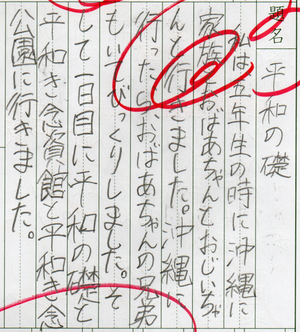 題名 平和の礎
私は五年生の時に沖縄に
家族とおばあちゃんとおじいちゃ
んと行きました。沖縄に
行ったら、おばあちゃんの兄弟
もいてびっくりしました。そ
して一日目に平和の礎と
平和き念資館と平和き念
公園に行きました。